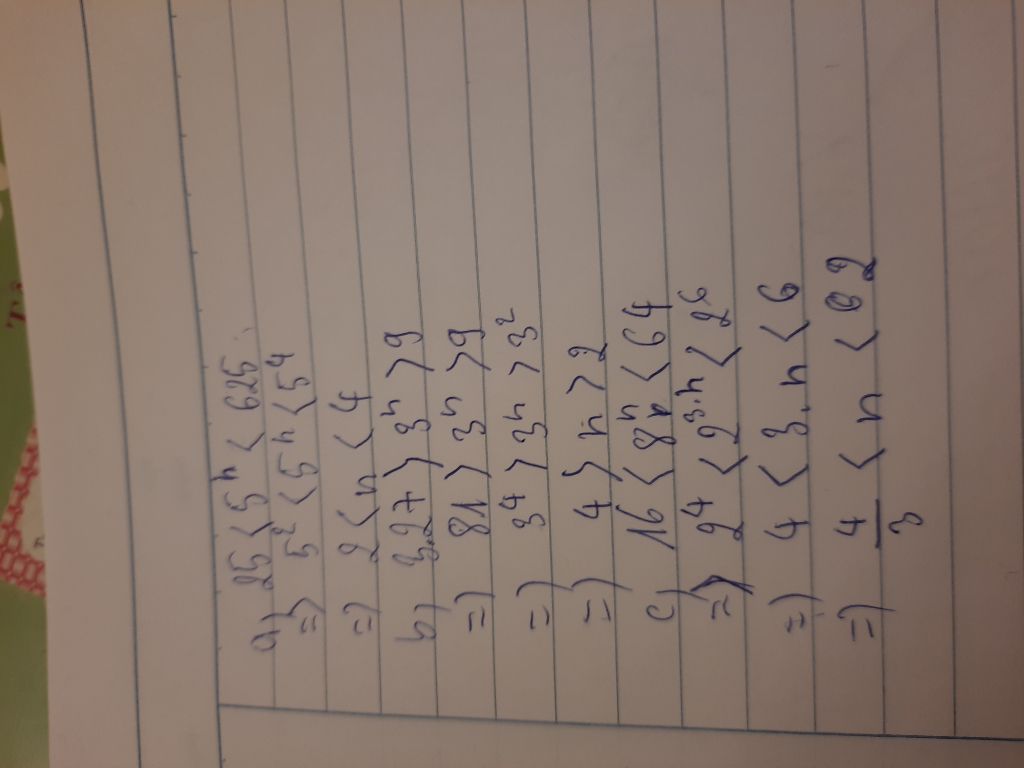 a) 25 < 5ⁿ < 625
=) 5² < 5ⁿ < 5⁴
=) 2 < n < 4
b) 3.27 > 3ⁿ > 9
=) 81 > 3ⁿ > 9
=) 3⁴ > 3ⁿ > 3²
=) 4 > n > 2
c) 16 < 8ⁿ < 64
=) 2⁴ < 2³·ⁿ < 2⁶
=) 4 < 3.n < 6
=) 4/3 < n < 2